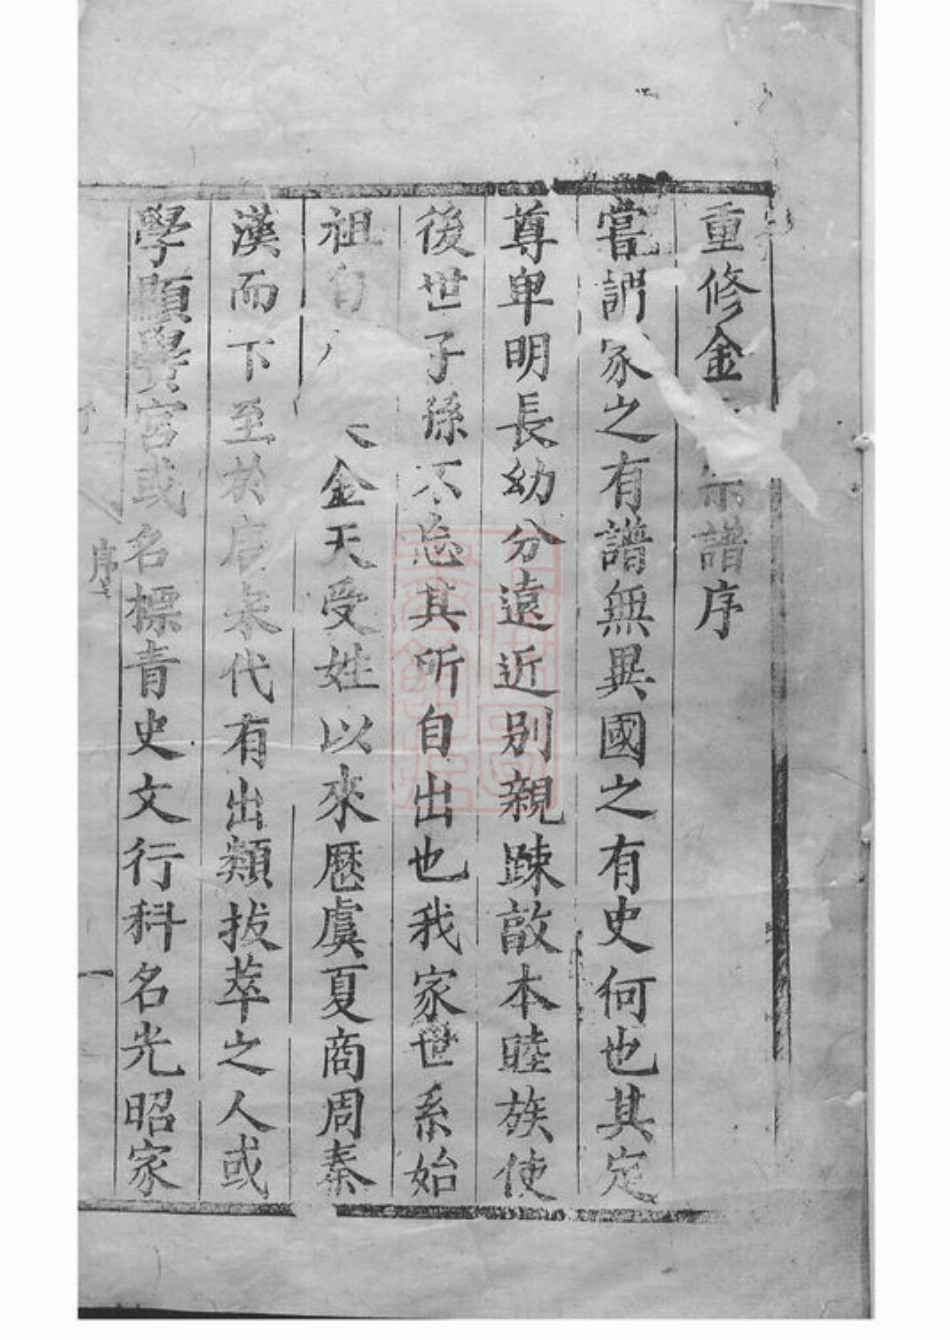 重修金宗譜序
嘗謂家之有譜無異國之有史何也其定
尊卑明長幼分遠近別親踈敵本睦族使
後世子孫不忘其所自出也我家世系始
祖自金天受姓以來歷虞夏商周秦
漢而下至於唐宋代有出類拔萃之人或
學顯黌宮或名標青史文行科名光昭家
序
一